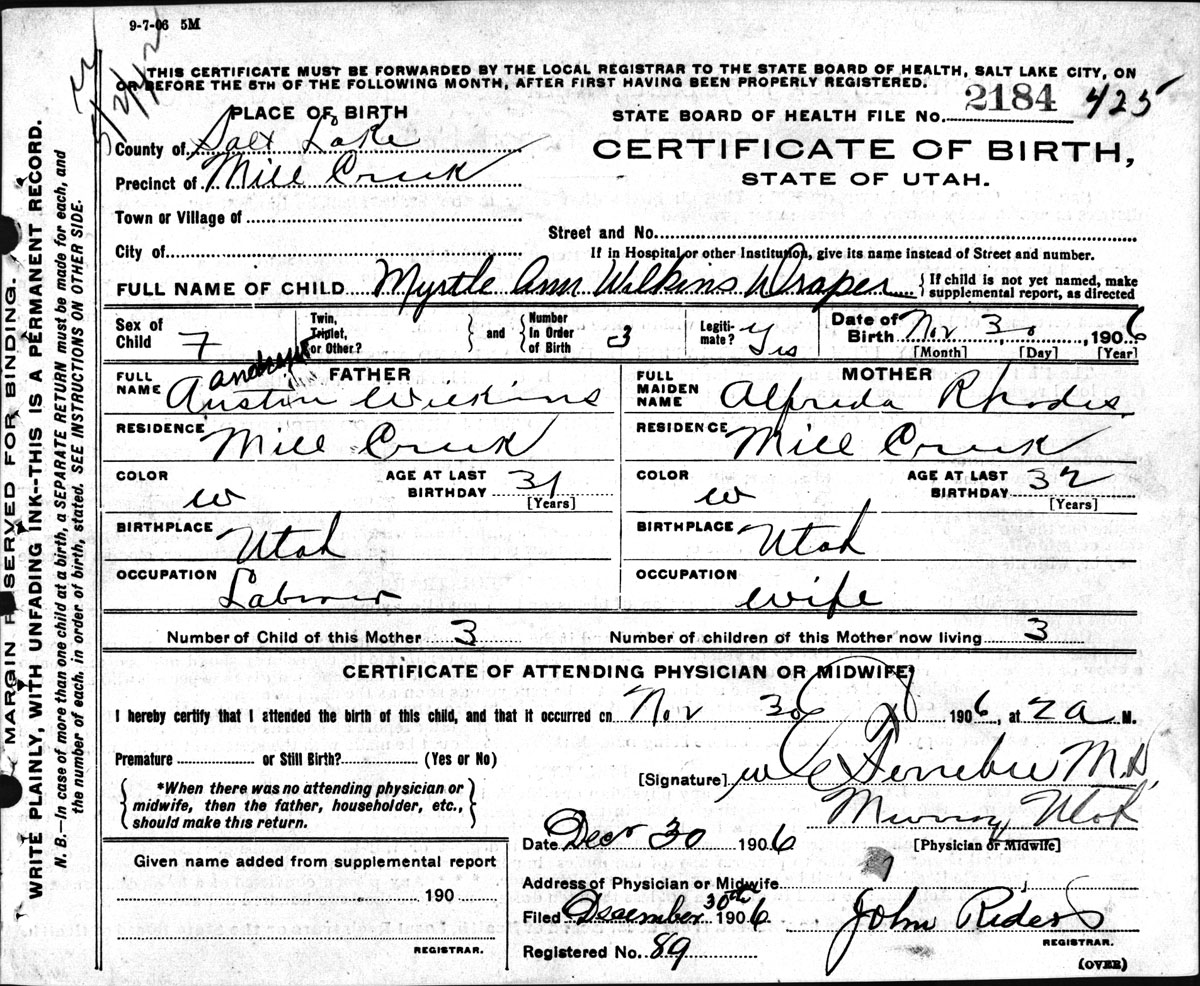 9-7-06 5M
THIS CERTIFICATE MUST BE FORWARDED BY THE LOCAL REGISTRAR TO THE STATE BOARD OF HEALTH, SALT LAKE CITY, ON
OR BEFORE THE 5TH OF THE FOLLOWING MONTH, AFTER FIRST HAVING BEEN PROPERLY REGISTERED.
PLACE OF BIRTH
STATE BOARD OF HEALTH FILE No. 2184 425
County of Salt Lake
CERTIFICATE OF BIRTH,
Precinct of Mill Creek
STATE OF UTAH.
Town or Village of
Street and No.
City of
If in Hospital or other Institution, give its name instead of Street and number.
FULL NAME OF CHILD Myrtle Ann Wilkins Draper { If child is not yet named, make supplemental report, as directed
Sex of Child F
Twin, Triplet, or Other? } and { Number In Order of Birth 3
Legitimate? Yes
Date of Birth Nov 30, 1906
[Month] [Day] [Year]
FATHER
FULL NAME Austin Wilkins
MOTHER
FULL MAIDEN NAME Alfreda Rhodes
RESIDENCE Mill Creek
RESIDENCE Mill Creek
COLOR W
AGE AT LAST BIRTHDAY 31
[Years]
COLOR W
AGE AT LAST BIRTHDAY 32
[Years]
BIRTHPLACE Utah
BIRTHPLACE Utah
OCCUPATION Laborer
OCCUPATION Wife
Number of Child of this Mother 3
Number of children of this Mother now living 3
CERTIFICATE OF ATTENDING PHYSICIAN OR MIDWIFE
I hereby certify that I attended the birth of this child, and that it occurred on Nov 30 1906, at 2 a M.
Premature or Still Birth? (Yes or No)
[Signature] M.D.
Murray Utah
[Physician or Midwife]
{ *When there was no attending physician or
midwife, then the father, householder, etc.,
should make this return. }
Date Dec 30 1906
Given name added from supplemental report
190
REGISTRAR.
Address of Physician or Midwife
Filed December 30th 1906
John Rider
REGISTRAR.
Registered No. 89
(OVER)
MARGIN RESERVED FOR BINDING.
WRITE PLAINLY, WITH UNFADING INK--THIS IS A PERMANENT RECORD.
N. B.—In case of more than one child at a birth, a SEPARATE RETURN must be made for each, and
the number of each, in order of birth, stated. SEE INSTRUCTIONS ON OTHER SIDE.